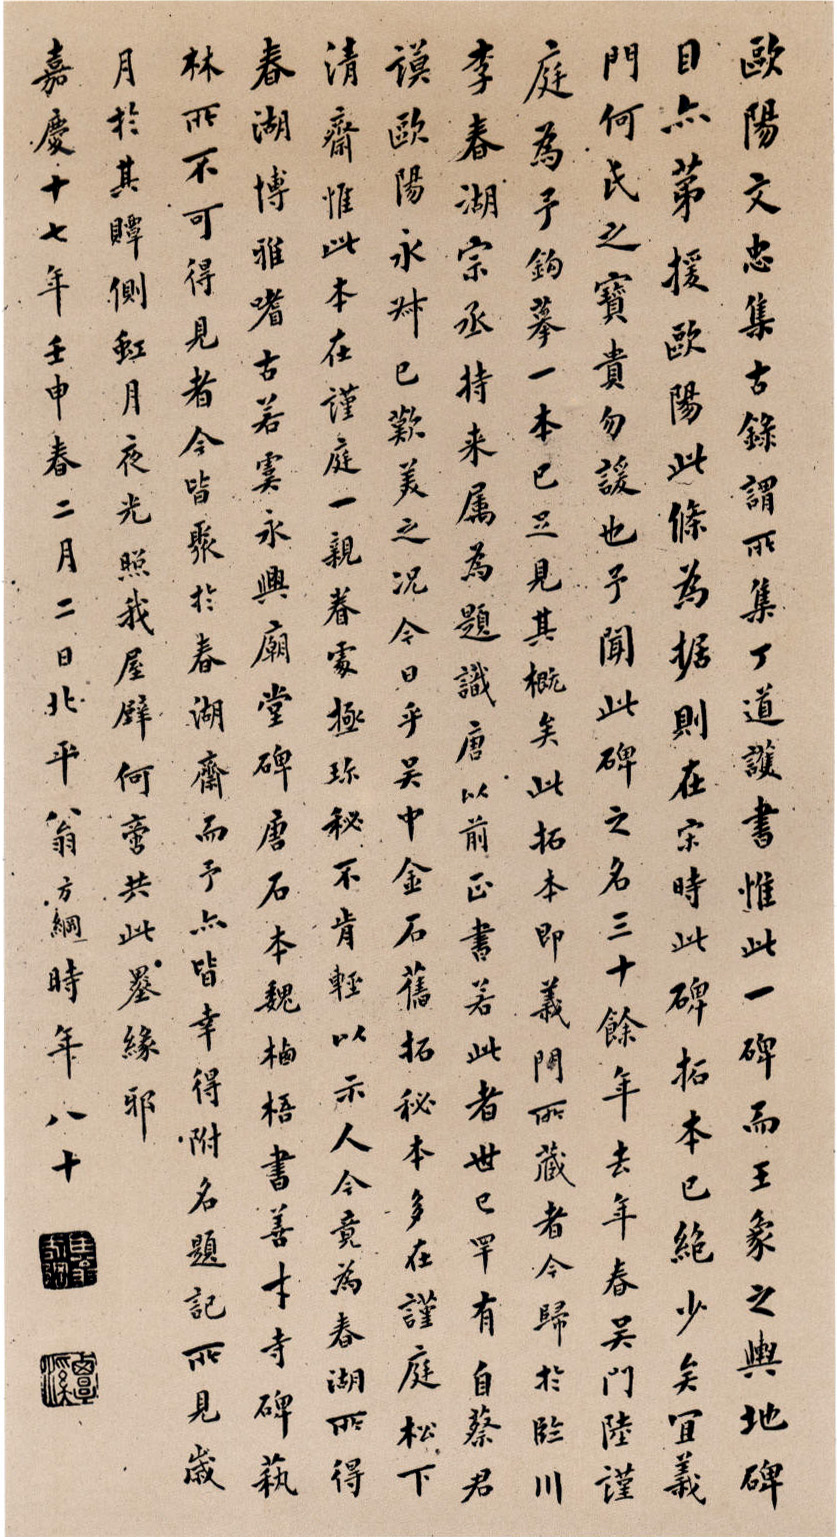 歐陽文忠集古錄謂所集丁道護書惟此一碑而王象之輿地碑
目亦第援歐陽此條為据則在宋時此碑拓本已絕少矣宜義
門何氏之寶貴勿諼也予聞此碑之名三十餘年去年春吳門陸謹
庭為予鉤摹一本已足見其概矣此拓本即義門所藏者今歸於臨川
李春湖宗丞持来属為題識唐以前正書若此者世已罕有自蔡君
謨歐陽永叔已歎美之況今日乎吳中金石舊拓秘本多在謹庭松下
清齋惟此本在謹庭一親眷處極珍秘不肯輕以示人今竟為春湖所得
春湖博雅嗜古若虞永興廟堂碑唐石本魏栖梧書善才寺碑蓺
林所不可得見者今皆聚於春湖齋而予亦皆幸得附名題記所見歲
月於其贉側虹月夜光照我屋壁何啻共此墨緣邪
嘉慶十七年壬申春二月二日北平翁方綱時年八十
覃溪